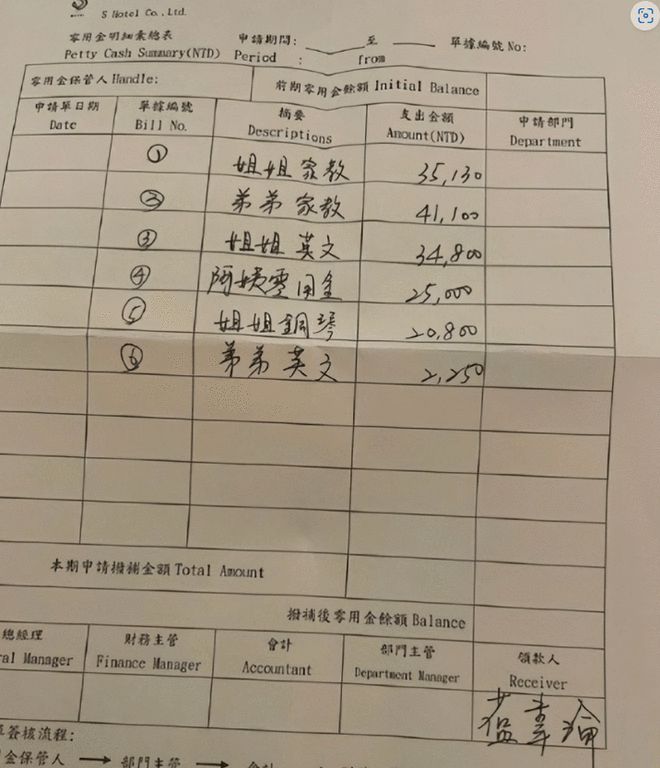 S Hotel Co., Ltd.
零用金明細彙總表
Petty Cash Summary(NTD)
申請期間: 至 單據編號 No:
Period : from
零用金保管人 Handle: 前期零用金餘額 Initial Balance
申請單日期 單據編號 摘要 支出金額 申請部門
Date Bill No. Descriptions Amount(NTD) Department
① 姐姐家教 35,130
② 弟弟家教 41,100
③ 姐姐英文 34,800
④ 阿姨零用金 25,000
⑤ 姐姐鋼琴 20,800
⑥ 弟弟英文 2,250
本期申請撥補金額 Total Amount
撥補後零用金餘額 Balance
總經理 財務主管 會計 部門主管 領款人
Manager Finance Manager Accountant Department Manager Receiver
簽核流程:
金保管人 → 部門主管 → 會計